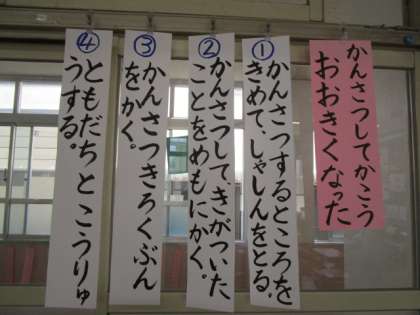 かんさつしてかこう
おおきくなった
①
かんさつするところを
きめて、しゃしんをとる。
②
かんさつしてきがついた
ことをめもにかく。
③
かんさつきろくぶん
をかく。
④
ともだちとこうりゅ
うする。